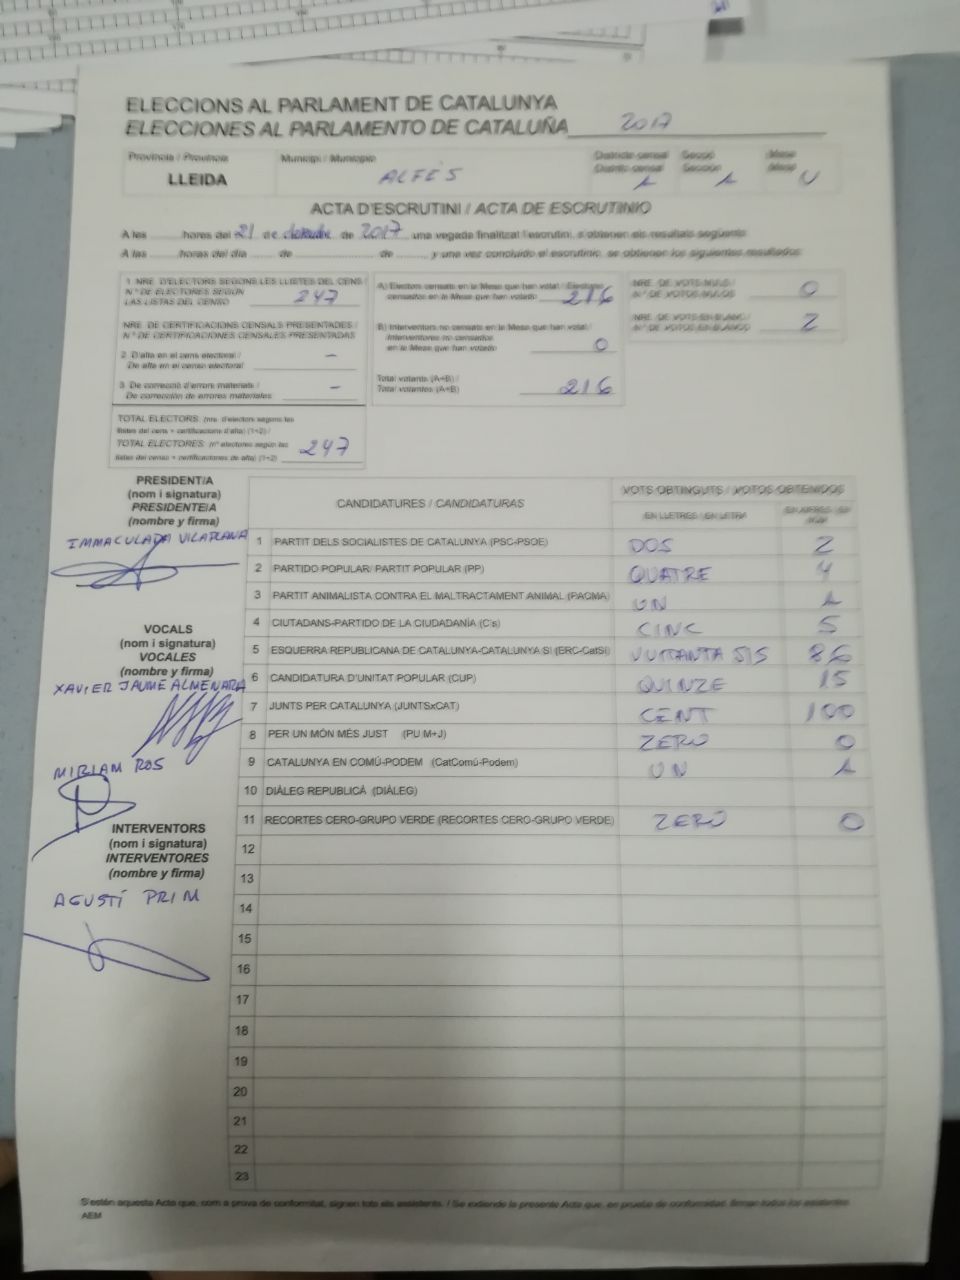 ELECCIONS AL PARLAMENT DE CATALUNYA
ELECCIONES AL PARLAMENTO DE CATALUÑA 2017
Provincia / Provincia
LLEIDA
Municipi / Municipio
ALFÉS
Districte censal
Distrito censal
1
Secció
Sección
1
Mesa
Mesa
U
ACTA D'ESCRUTINI / ACTA DE ESCRUTINIO
A les ........ hores del 21 de desembre de 2017, una vegada finalitzat l'escrutini, s'obtenen els resultats següents:
A las ........ horas del día ........ de ........ de ........, y una vez concluido el escrutinio, se obtienen los siguientes resultados:
1 NRE. D'ELECTORS SEGONS LES LLISTES DEL CENS /
N.º DE ELECTORES SEGÚN
LAS LISTAS DEL CENSO 247
NRE. DE CERTIFICACIONS CENSALS PRESENTADES /
N.º DE CERTIFICACIONES CENSALES PRESENTADAS
2 D'alta en el cens electoral /
De alta en el censo electoral –
3 De correcció d'errors materials /
De corrección de errores materiales –
TOTAL ELECTORS: (nre. d'electors segons les
llistes del cens + certificacions d'alta) (1+2) /
TOTAL ELECTORES: (nº electores según las
listas del censo + certificaciones de alta) (1+2) 247
A) Electors censats en la Mesa que han votat / Electores
censados en la Mesa que han votado 216
B) Interventors no censats en la Mesa que han votat /
Interventores no censados
en la Mesa que han votado 0
Total votants (A+B) /
Total votantes (A+B) 216
NRE. DE VOTS NULS /
N.º DE VOTOS NULOS 0
NRE. DE VOTS EN BLANC /
N.º DE VOTOS EN BLANCO 2
PRESIDENT/A
(nom i signatura)
PRESIDENTE/A
(nombre y firma)
IMMACULADA VILAPLANA
VOCALS
(nom i signatura)
VOCALES
(nombre y firma)
XAVIER JAUME ALMENARA
MIRIAM ROS
INTERVENTORS
(nom i signatura)
INTERVENTORES
(nombre y firma)
AGUSTÍ PRIM
CANDIDATURES / CANDIDATURAS
VOTS OBTINGUTS / VOTOS OBTENIDOS
EN LLETRES / EN LETRA
1 PARTIT DELS SOCIALISTES DE CATALUNYA (PSC-PSOE) DOS 2
2 PARTIDO POPULAR/ PARTIT POPULAR (PP) QUATRE 4
3 PARTIT ANIMALISTA CONTRA EL MALTRACTAMENT ANIMAL (PACMA) UN 1
4 CIUTADANS-PARTIDO DE LA CIUDADANÍA (C's) CINC 5
5 ESQUERRA REPUBLICANA DE CATALUNYA-CATALUNYA SÍ (ERC-CatSí) VUITANTA SIS 86
6 CANDIDATURA D'UNITAT POPULAR (CUP) QUINZE 15
7 JUNTS PER CATALUNYA (JUNTSxCAT) CENT 100
8 PER UN MÓN MÉS JUST (PUM+J) ZERO 0
9 CATALUNYA EN COMÚ-PODEM (CatComú-Podem) UN 1
10 DIÀLEG REPUBLICÀ (DIÀLEG)
11 RECORTES CERO-GRUPO VERDE (RECORTES CERO-GRUPO VERDE) ZERO 0
12
13
14
15
16
17
18
19
20
21
22
23
S'estén aquesta Acta que, com a prova de conformitat, signen tots els assistents. / Se extiende la presente Acta que, en prueba de conformidad, firman todos los asistentes
AEM